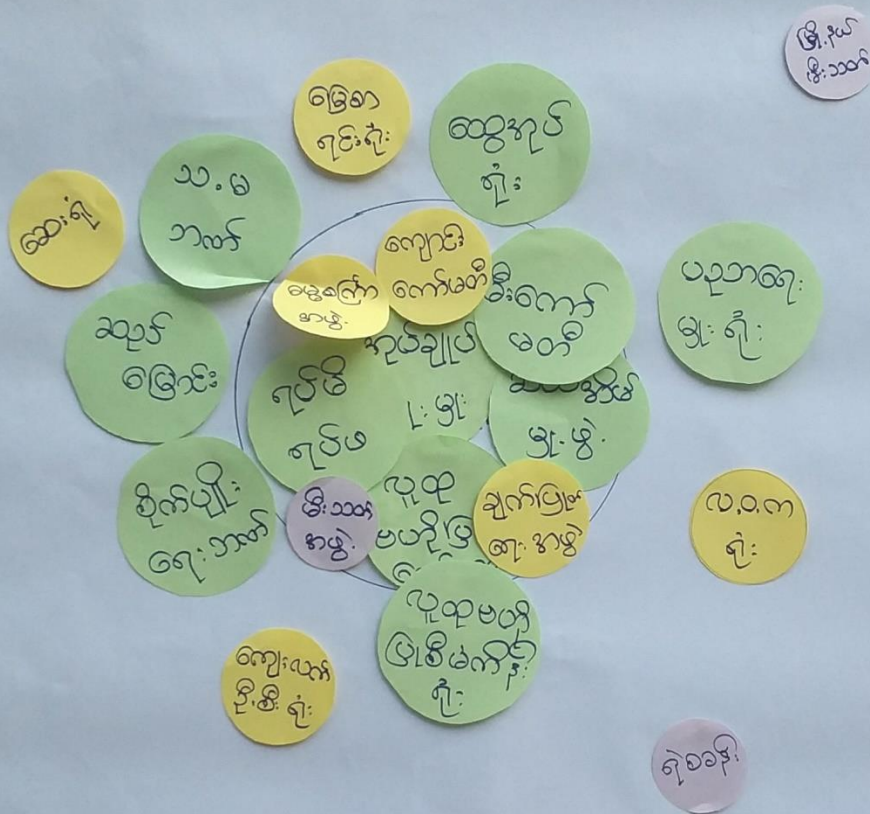 မြို့နယ်
မီးသတ်
မြေစာ
ရင်းရုံး
ထွေအုပ်
ရုံး
သ.မ
ဘဏ်
ဆေးရုံ
ကျောင်း
ကော်မတီ
မွေးကြော
အဖွဲ့
မီးကော်
မတီ
ပညာရေး
မှူးရုံး
ဆည်
မြောင်း
အုပ်ချုပ်
ရပ်မိ
ရပ်ဖ
မှူး
မှူးဖွဲ့
စိုက်ပျိုး
ရေးဘဏ်
မီးသတ်
အဖွဲ့
လူထု
ဗဟိုပြု
ချက်ပြုတ်
ရေးအဖွဲ့
လ.ဝ.က
ရုံး
လူထုဗဟို
ပြုစီမံကိန်း
ရုံး
ကျေးလက်
ဦးစီးရုံး
ရဲစခန်း